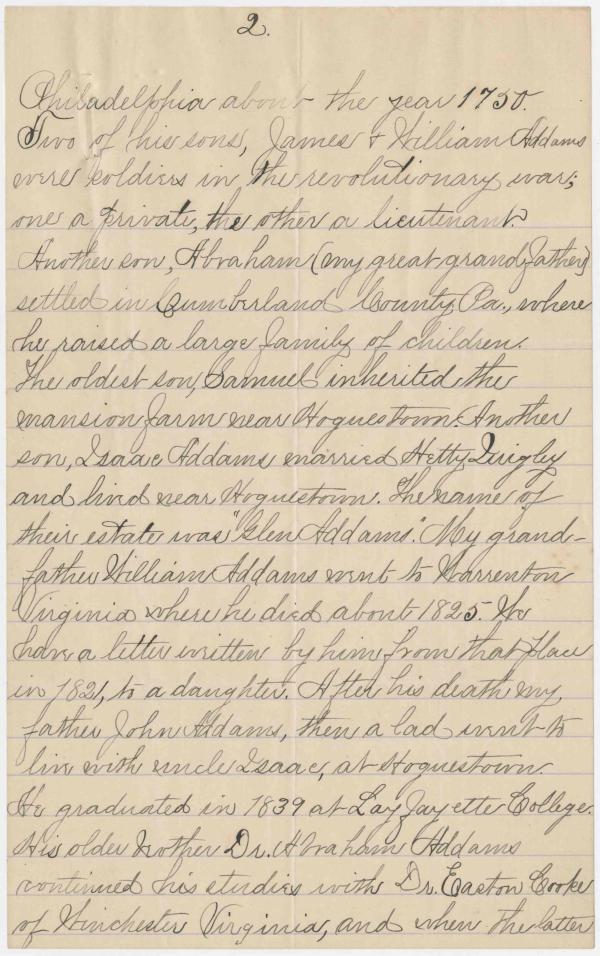 2.
Philadelphia about the year 1750.
Two of his sons, James & William Addams
were soldiers in the revolutionary war;
one a private, the other a lieutenant.
Another son, Abraham (my great-grandfather)
settled in Cumberland County, Pa., where
he raised a large family of children.
The oldest son, Samuel inherited the
mansion farm near Hoguestown. Another
son, Isaac Addams married Hetty Quigley
and lived near Hoguestown. The name of
their estate was "Glen Addams." My grand-
father William Addams went to Warrenton
Virginia where he died about 1825. We
have a letter written by him from that place
in 1821, to a daughter. After his death my
father John Addams, then a lad went to
live with uncle Isaac, at Hoguestown.
He graduated in 1839 at Lay Fayette College.
His older brother Dr. Abraham Addams
continued his studies with Dr. Easton Cooke
of Winchester Virginia, and when the latter